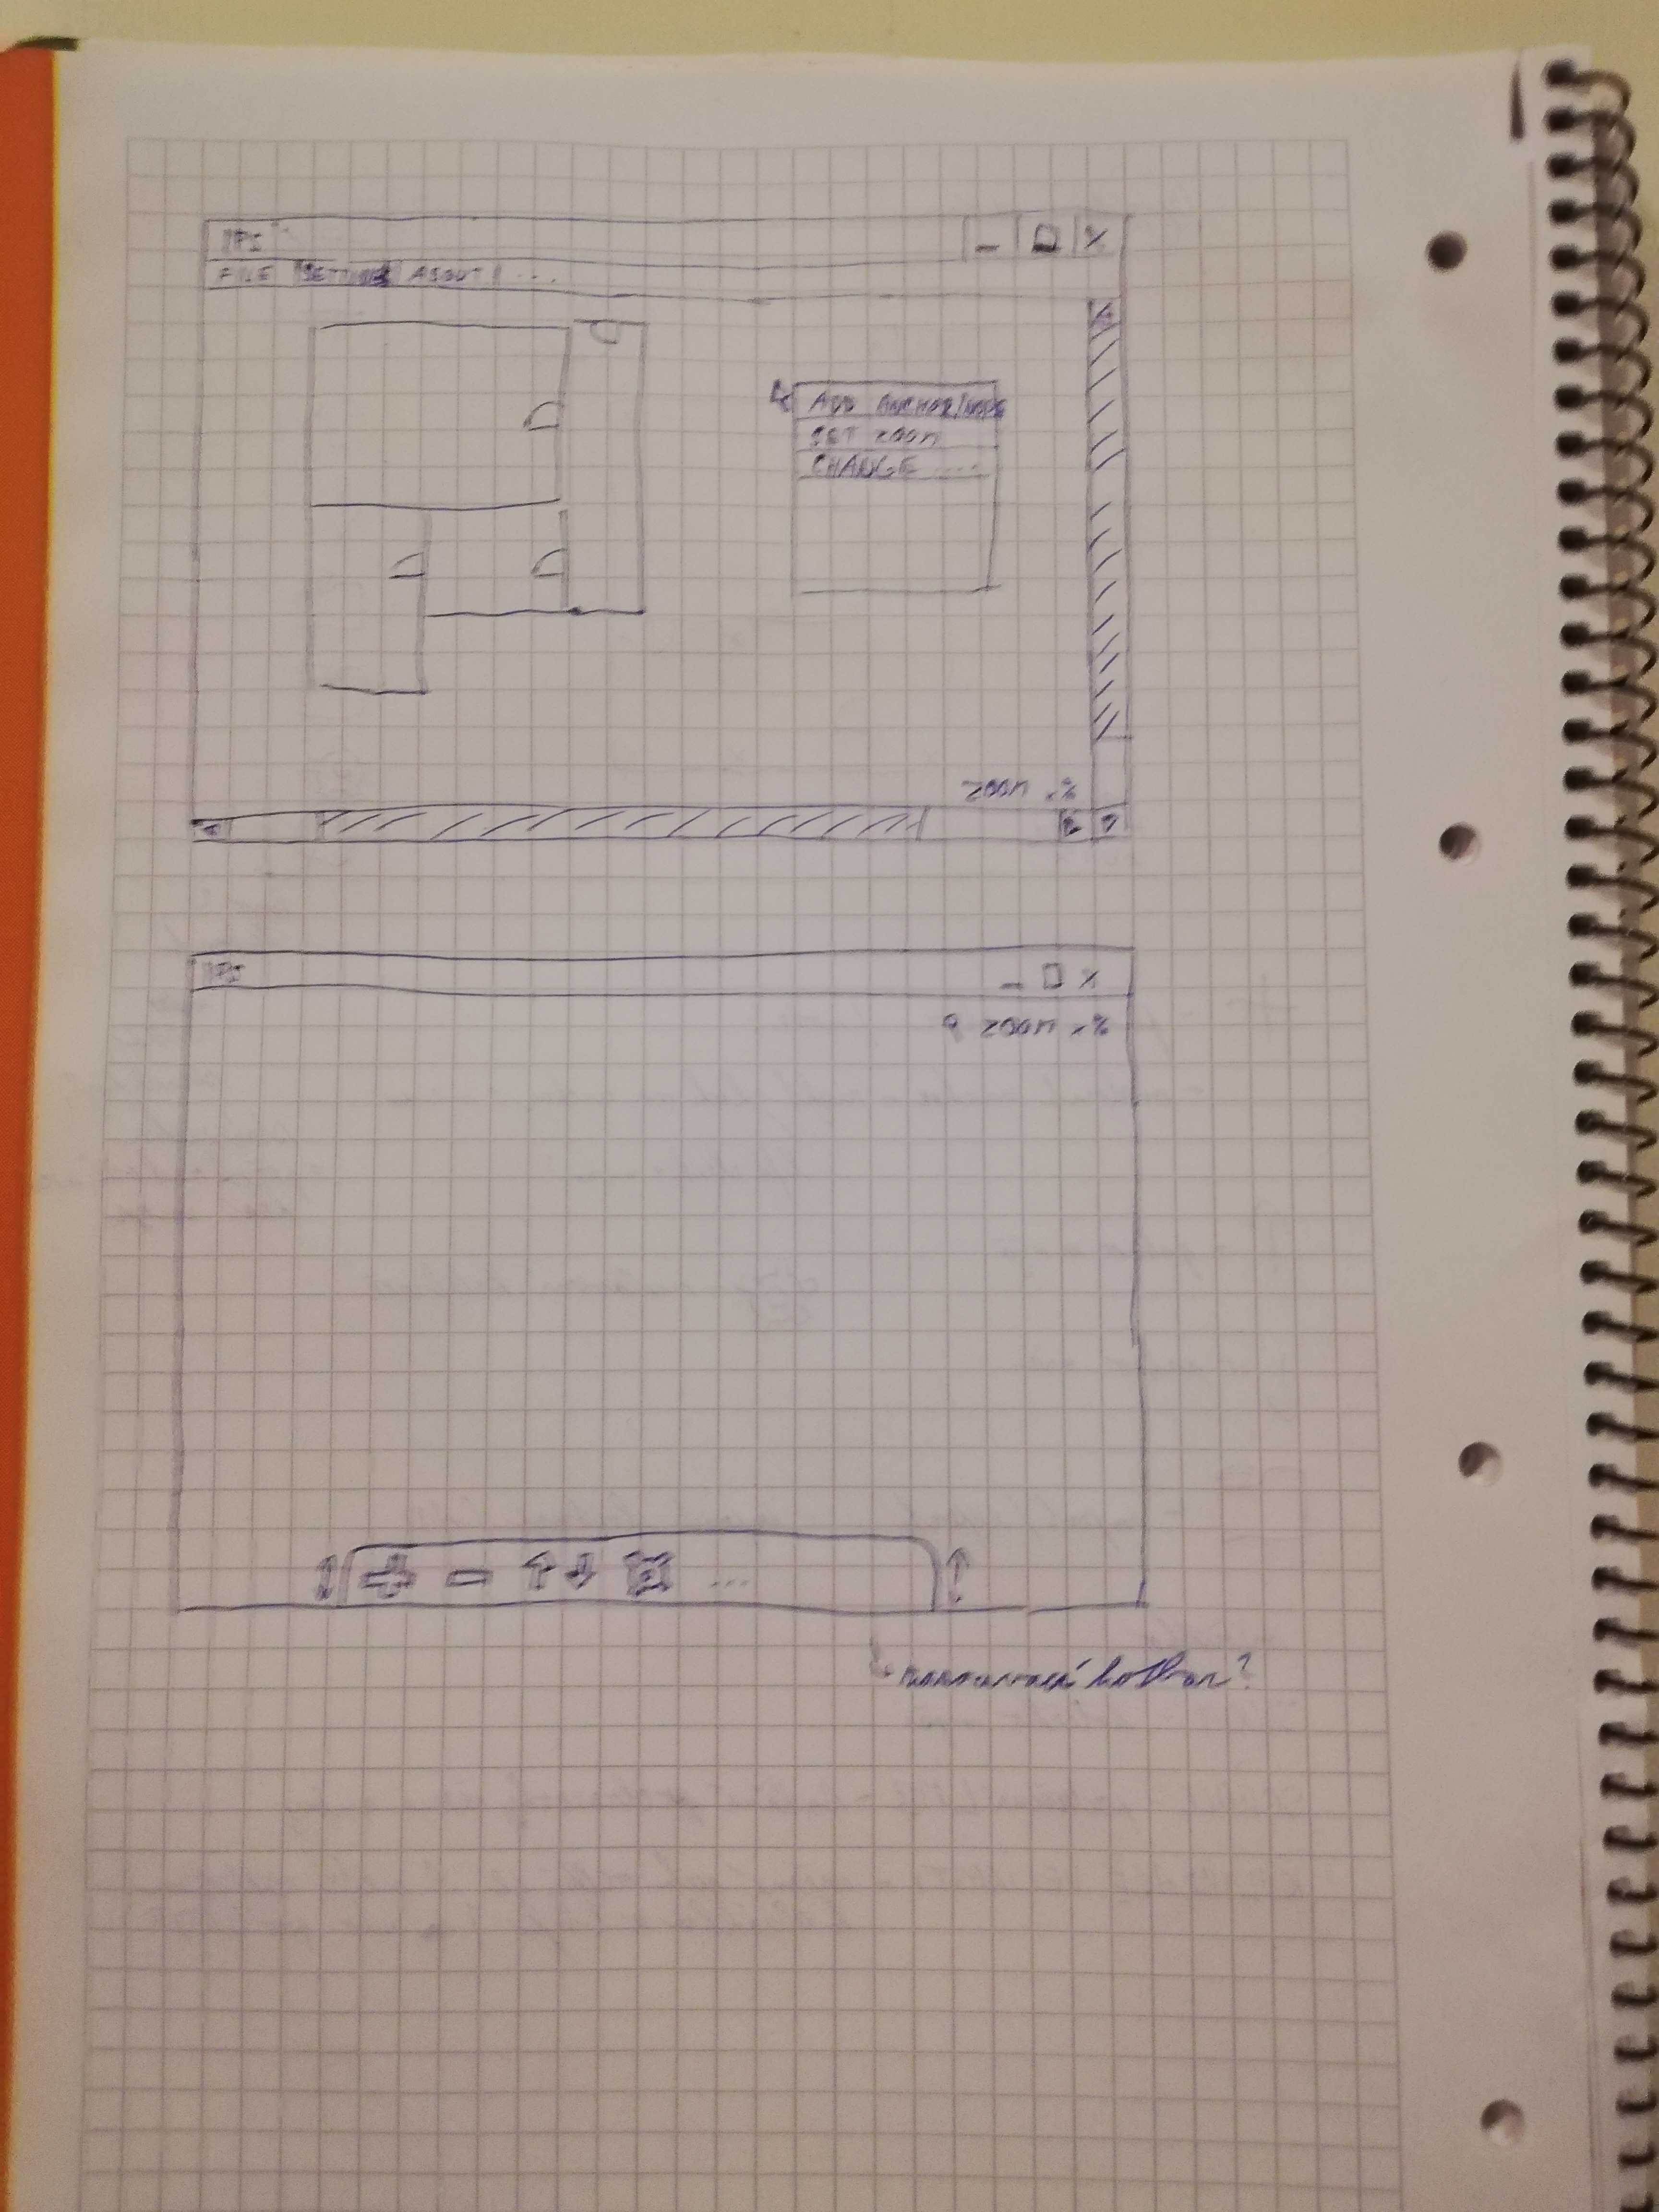 IPS
FILE SETTINGS ABOUT ...
ADD ANCHOR/NODE
SET ZOOM
CHANGE ....
ZOOM x%
IPS
ZOOM x%
...
hotbar?